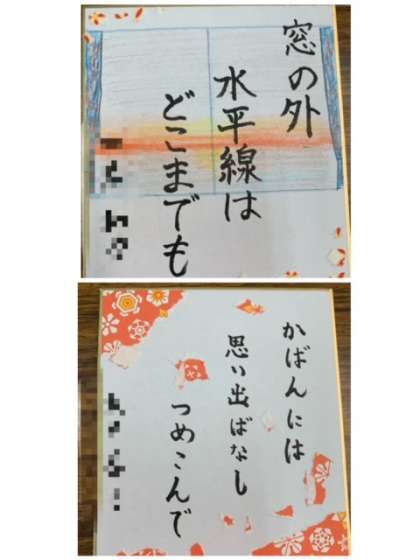 窓の外
水平線は
どこまでも
かばんには
思い出ばなし
つめこんで